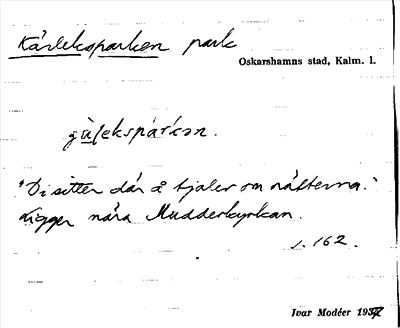 Kärleksparken park
Oskarshamns stad, Kalm. l.
"Di sitter där å tjaler om nätterna."
Ligger nära Mudderkyrkan.
s. 162.
Ivar Modéer 1937